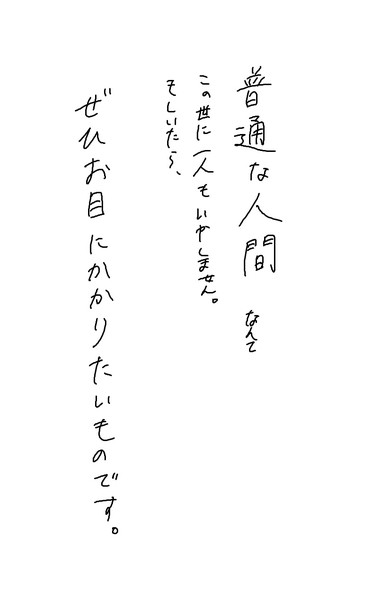 普通な人間なんて
この世に一人もいやしません。
もしいたら、
ぜひお目にかかりたいものです。